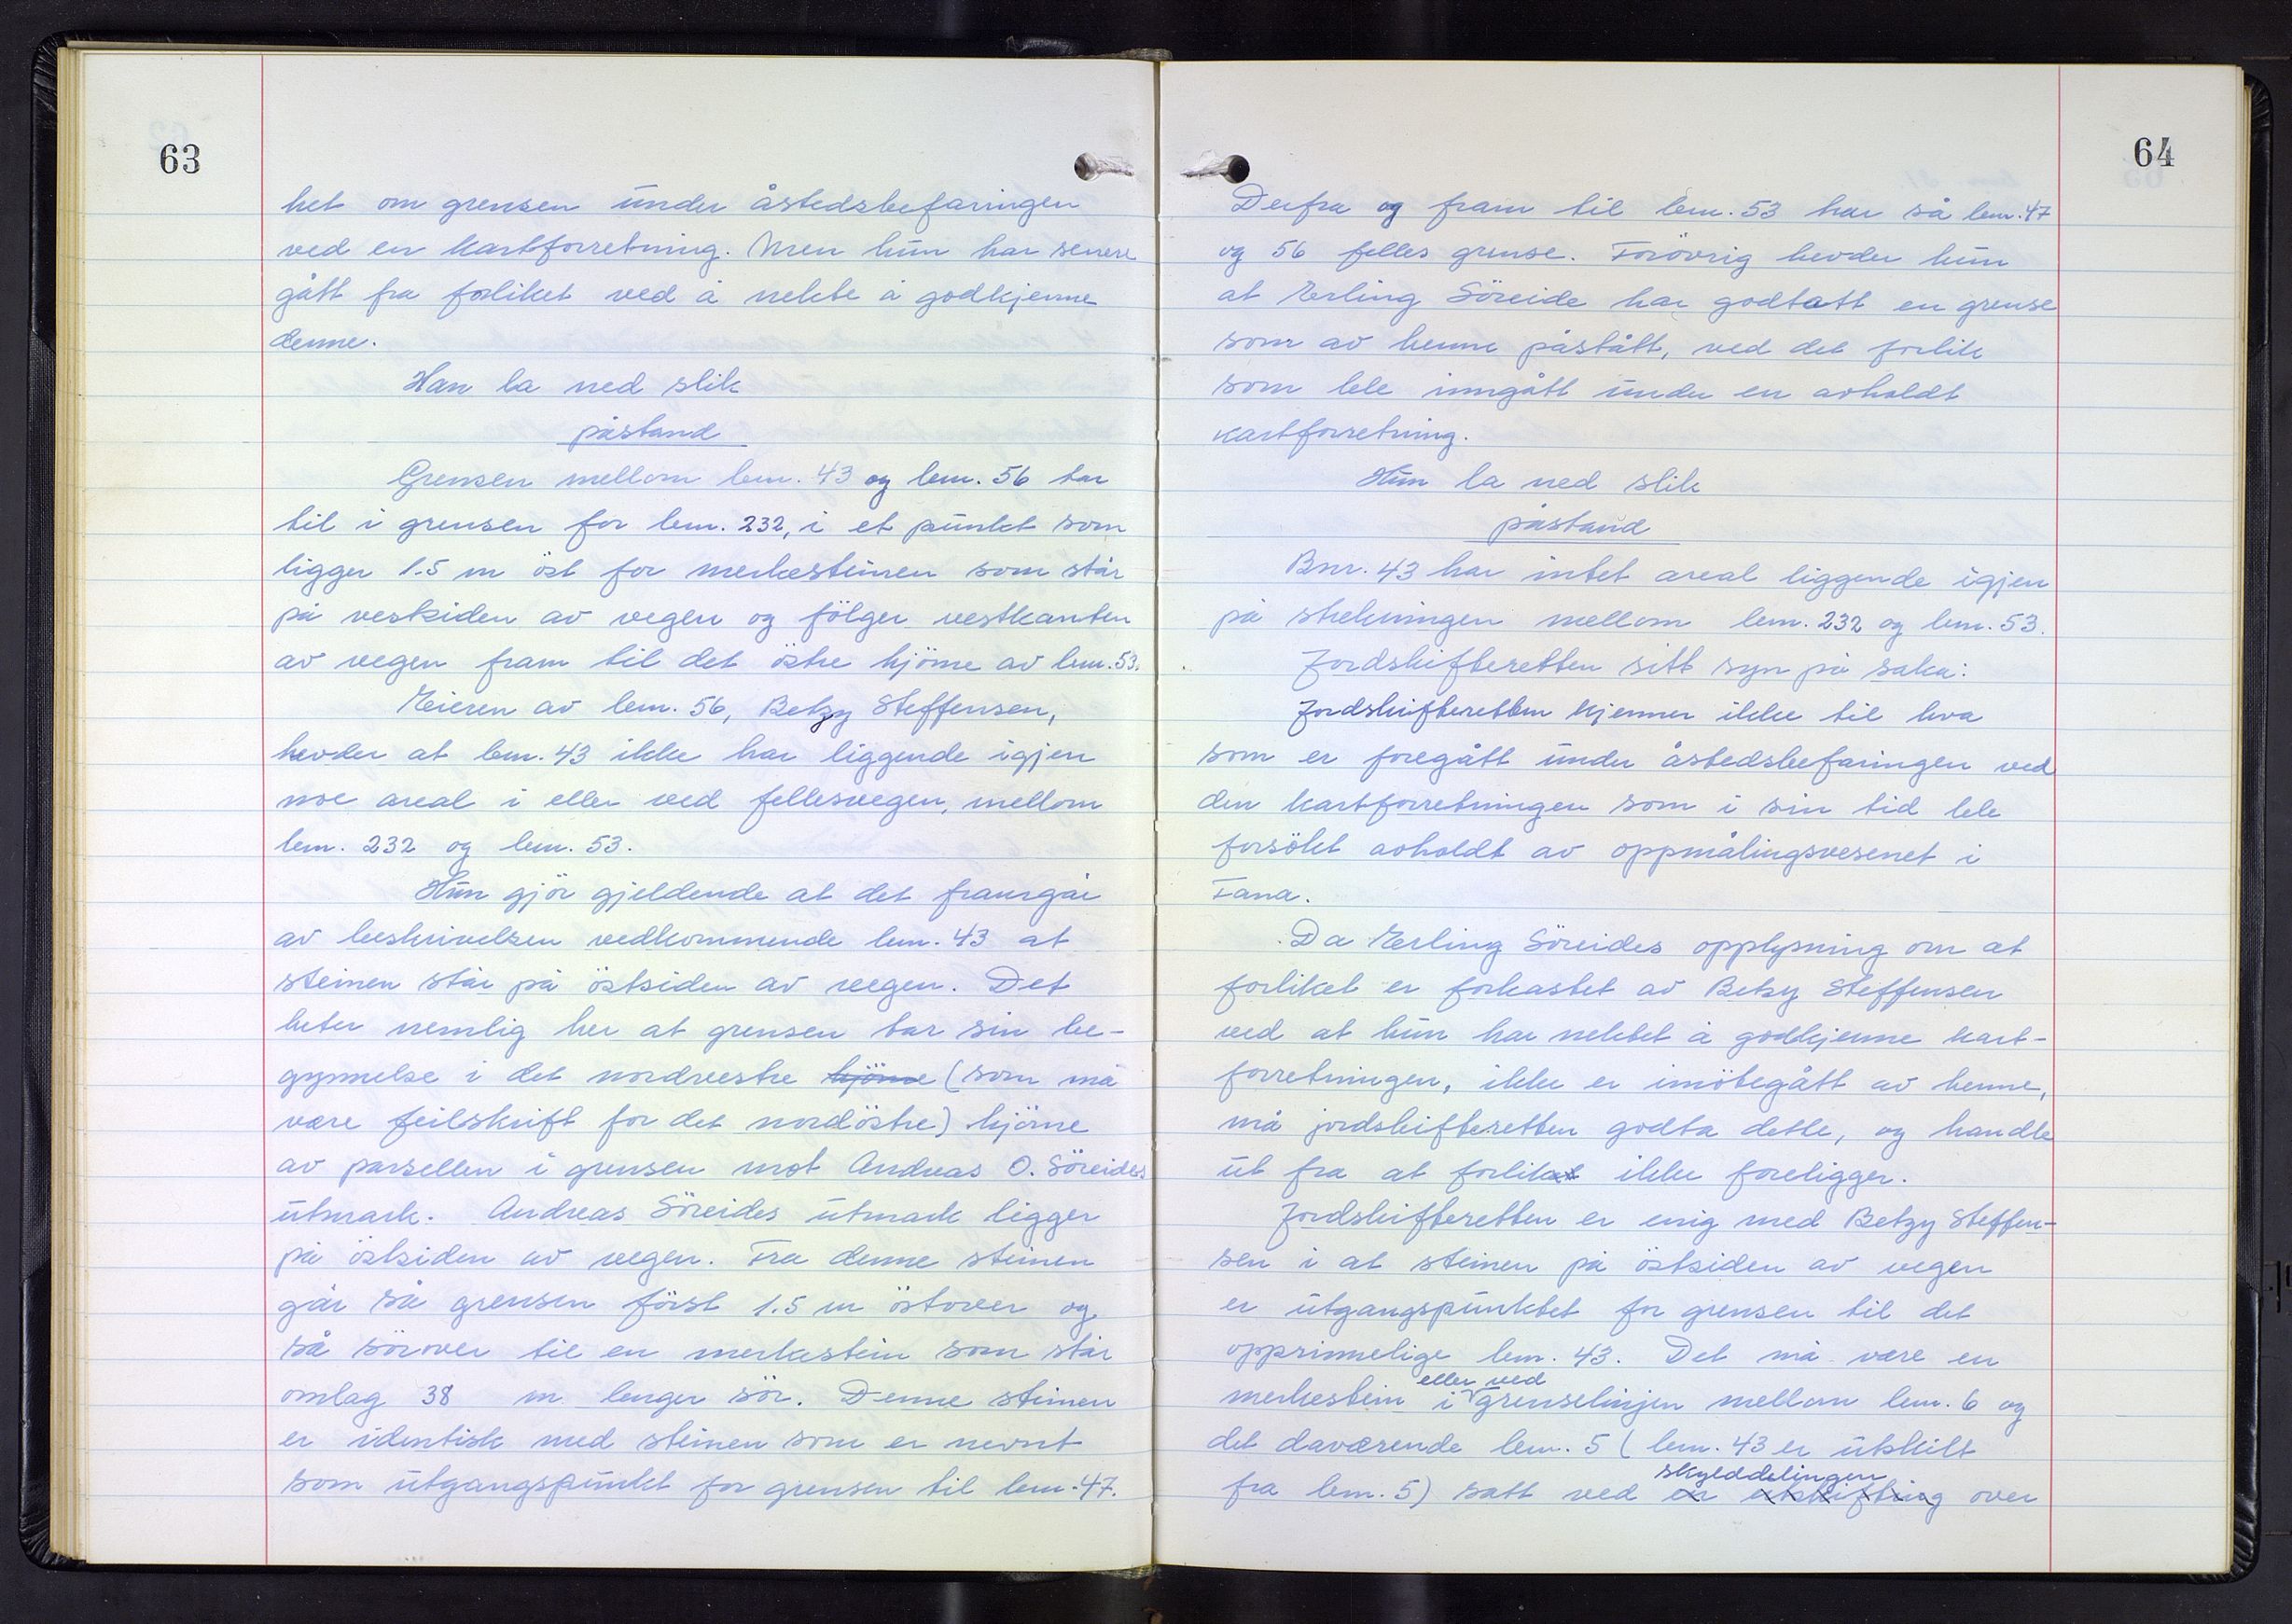 63
het om grensen under åstedsbefaringen
ved en kartforretning. Men hun har senere
gått fra forliket ved å nekte å godkjenne
denne.
Han la ned slik
påstand
Grensen mellom bnr. 43 og bnr. 56 tar
til i grensen for bnr. 232, i et punkt som
ligger 1.5 m öst for merkesteinen som står
på vestsiden av vegen og fölger vestkanten
av vegen fram til det östre hjörne av bnr. 53.
Eieren av bnr. 56, Betzy Steffensen,
hevder at bnr. 43 ikke har liggende igjen
noe areal i eller ved fellesvegen, mellom
bnr. 232 og bnr. 53.
Hun gjör gjeldende at det framgår
av beskrivelsen vedkommende bnr. 43 at
steinen står på östsiden av vegen. Det
heter nemlig her at grensen tar sin be-
gynnelse i det nordvestre hjörne (som må
være feilskrift for det nordöstre) hjörne
av parsellen i grensen mot Andreas O. Söreides
utmark. Andreas Söreides utmark ligger
på östsiden av vegen. Fra denne steinen
går så grensen först 1.5 m östover og
så sörover til en merkestein som står
omlag 38 m lenger sör. Denne steinen
er identisk med steinen som er nevnt
som utgangspunkt for grensen til bnr. 47.
64
Derfra og fram til bnr. 53 har så bnr. 47
og 56 felles grense. Forövrig hevder hun
at Erling Söreide har godtatt en grense
som av henne påstått, ved det forlik
som ble inngått under en avholdt
kartforretning.
Hun la ned slik
påstand
Bnr. 43 har intet areal liggende igjen
på strekningen mellom bnr. 232 og bnr. 53.
Jordskifteretten sitt syn på saka:
Jordskifteretten kjenner ikke til hva
som er foregått under åstedsbefaringen ved
den kartforretningen som i sin tid ble
forsökt avholdt av oppmålingsvesenet i
Fana.
Da Erling Söreides opplysning om at
forliket er forkastet av Betzy Steffensen
ved at hun har nektet å godkjenne kart-
forretningen, ikke er imötegått av henne,
må jordskifteretten godta dette, og handle
ut fra at forliket ikke foreligger.
Jordskifteretten er enig med Betzy Steffen-
sen i at steinen på östsiden av vegen
er utgangspunktet for grensen til det
opprinnelige bnr. 43. Det må være en
eller ved
merkestein i grenselinjen mellom bnr. 6 og
det daværende bnr. 5 (bnr. 43 er utskilt
skylddelingen
fra bnr. 5) satt ved en utskifting over